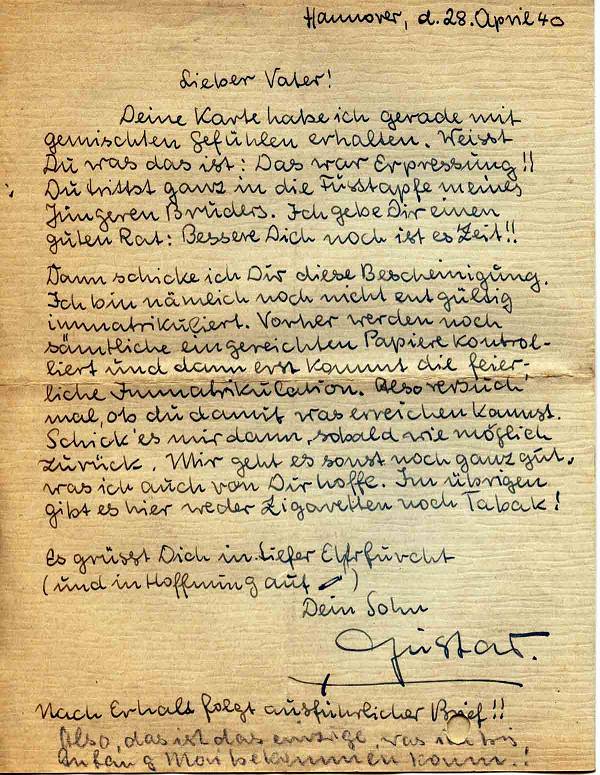 Hannover, d. 28. April 40
Lieber Vater!
Deine Karte habe ich gerade mit
gemischten Gefühlen erhalten. Weisst
Du was das ist: Das war Erpressung!!
Du trittst ganz in die Fusstapfe meines
Jüngeren Bruders. Ich gebe Dir einen
guten Rat: Bessere Dich noch ist es Zeit!!
Dann schicke ich Dir diese Bescheinigung.
Ich bin nämlich noch nicht entgültig
immatrikuliert. Vorher werden noch
sämtliche eingereichten Papiere kontrol-
liert und dann erst kommt die feier-
liche Immatrikulation. Also versuch
mal, ob du damit was erreichen kannst.
Schick' es mir dann, sobald wie möglich
zurück. Mir geht es sonst noch ganz gut,
was ich auch von Dir hoffe. Im übrigen
gibt es hier weder Zigaretten noch Tabak!
Es grüsst Dich in tiefer Ehrfurcht
(und in Hoffnung auf )
Dein Sohn
Gustav.
Nach Erhalt folgt ausführlicher Brief!!
Also, das ist das einzige, was ich bis
Anfang Mai bekommen kann.!